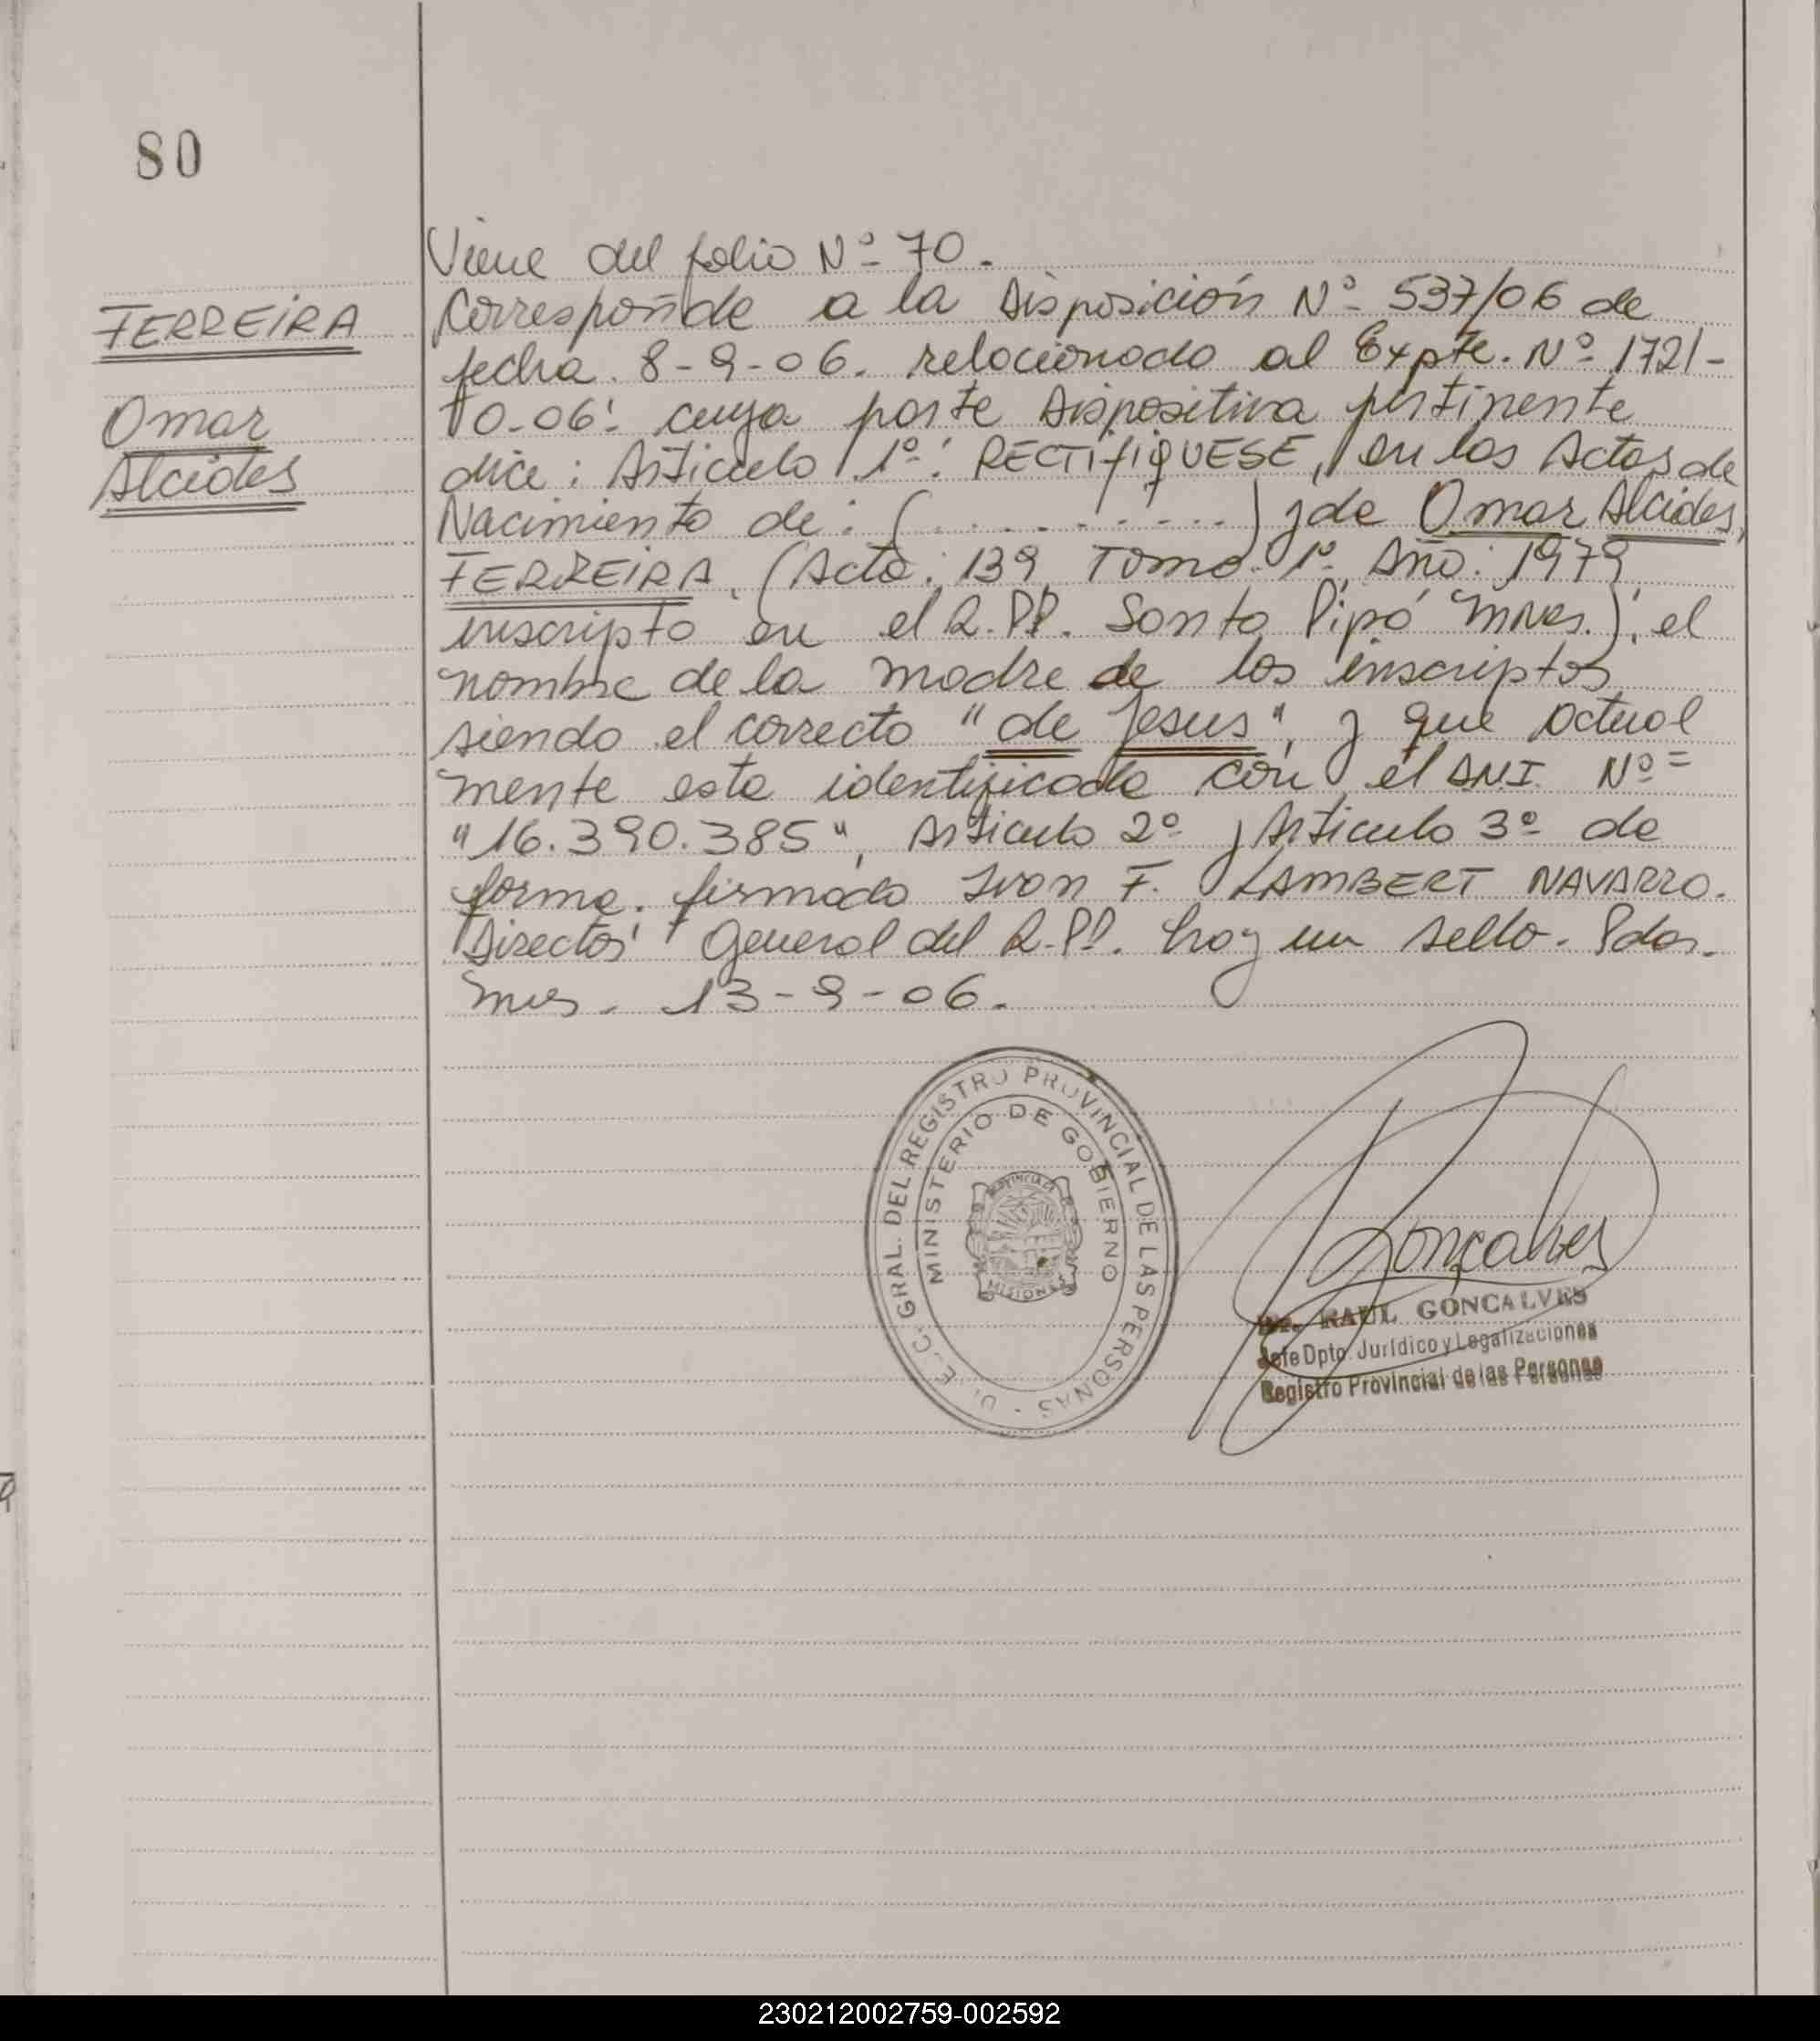 80
Viene del folio Nº 70.
FERREIRA
Corresponde a la Disposición Nº 537/06 de
fecha. 8-9-06. relacionado al Expte. Nº 1721-
Omar
10-06: cuya parte Dispositiva pertinente
Alcides
dice: Articulo 1º: RECTIFIQUESE, en las Actas de
Nacimiento de: (..........) y de Omar Alcides,
FERREIRA. (Acta: 139, Tomo: 1º, Año: 1979,
inscripto en el R.PP. Santo Pipó Mnes.); el
nombre de la madre de los inscriptos
siendo el correcto "de Jesus", y que actual
mente esta identificada con el DNI. Nº=
"16.390.385", Articulo 2º y Articulo 3º de
forma. firmado Ivan F. LAMBERT NAVARRO.
Director General del R.PP. hay un sello. Pdas.
Mnes. 13-9-06.
GRAL. DEL REGISTRO PROVINCIAL DE LAS PERSONAS
MINISTERIO DE GOBIERNO
PROVINCIA
MISIONES
Gonçalves
Dr. RAUL GONCALVES
Jefe Dpto. Jurídico y Legalizaciones
Registro Provincial de las Personas
230212002759-002592